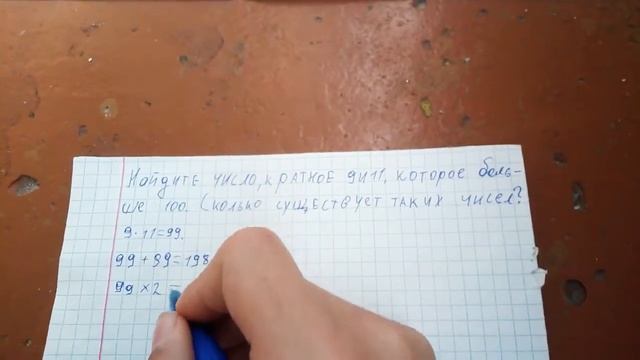 Найдите число, кратное 9 и 11, которое боль-
ше 100. Сколько существует таких чисел?
9·11=99.
99+99=198
99×2=